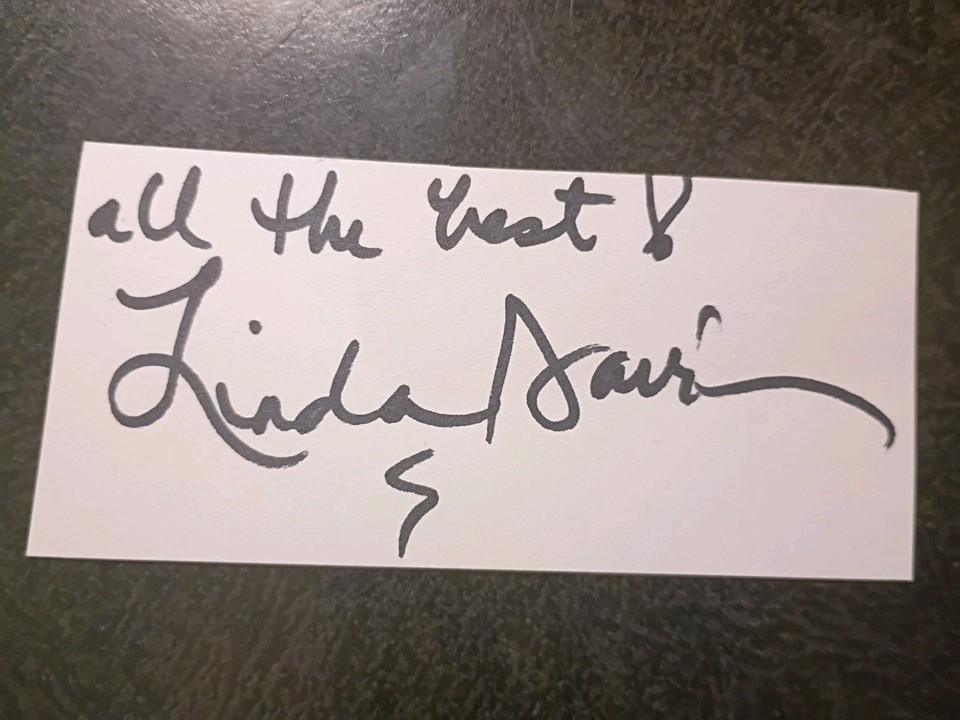 all the best!
Linda Davis